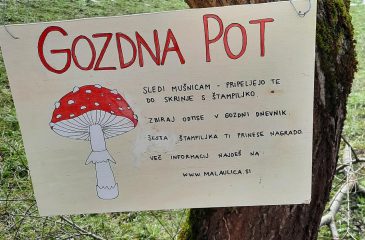 GOZDNA POT
SLEDI MUŠNICAM - PRIPELJEJO TE
DO SKRINJE S ŠTAMPILJKO.
ZBIRAJ ODTISE V GOZDNI DNEVNIK.
ŠESTA ŠTAMPILJKA TI PRINESE NAGRADO.
VEČ INFORMACIJ NAJDEŠ NA
WWW.MALAULICA.SI